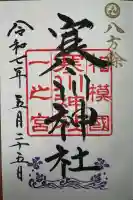 八方除
相模國
一之宮
寒川神社
令和七年五月二十五日